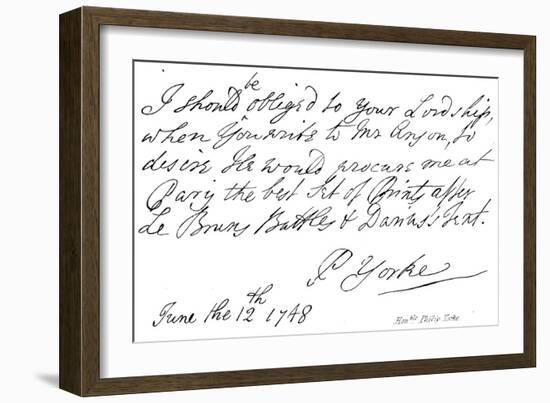 I should be obliged to Your Lordship,
when You write to Mr Anson, to
desire He would procure me at
Paris the best Set of Prints after
Le Bruns Battles & Darius's Tent.
P Yorke
June the 12th 1748
Honble Philip Yorke